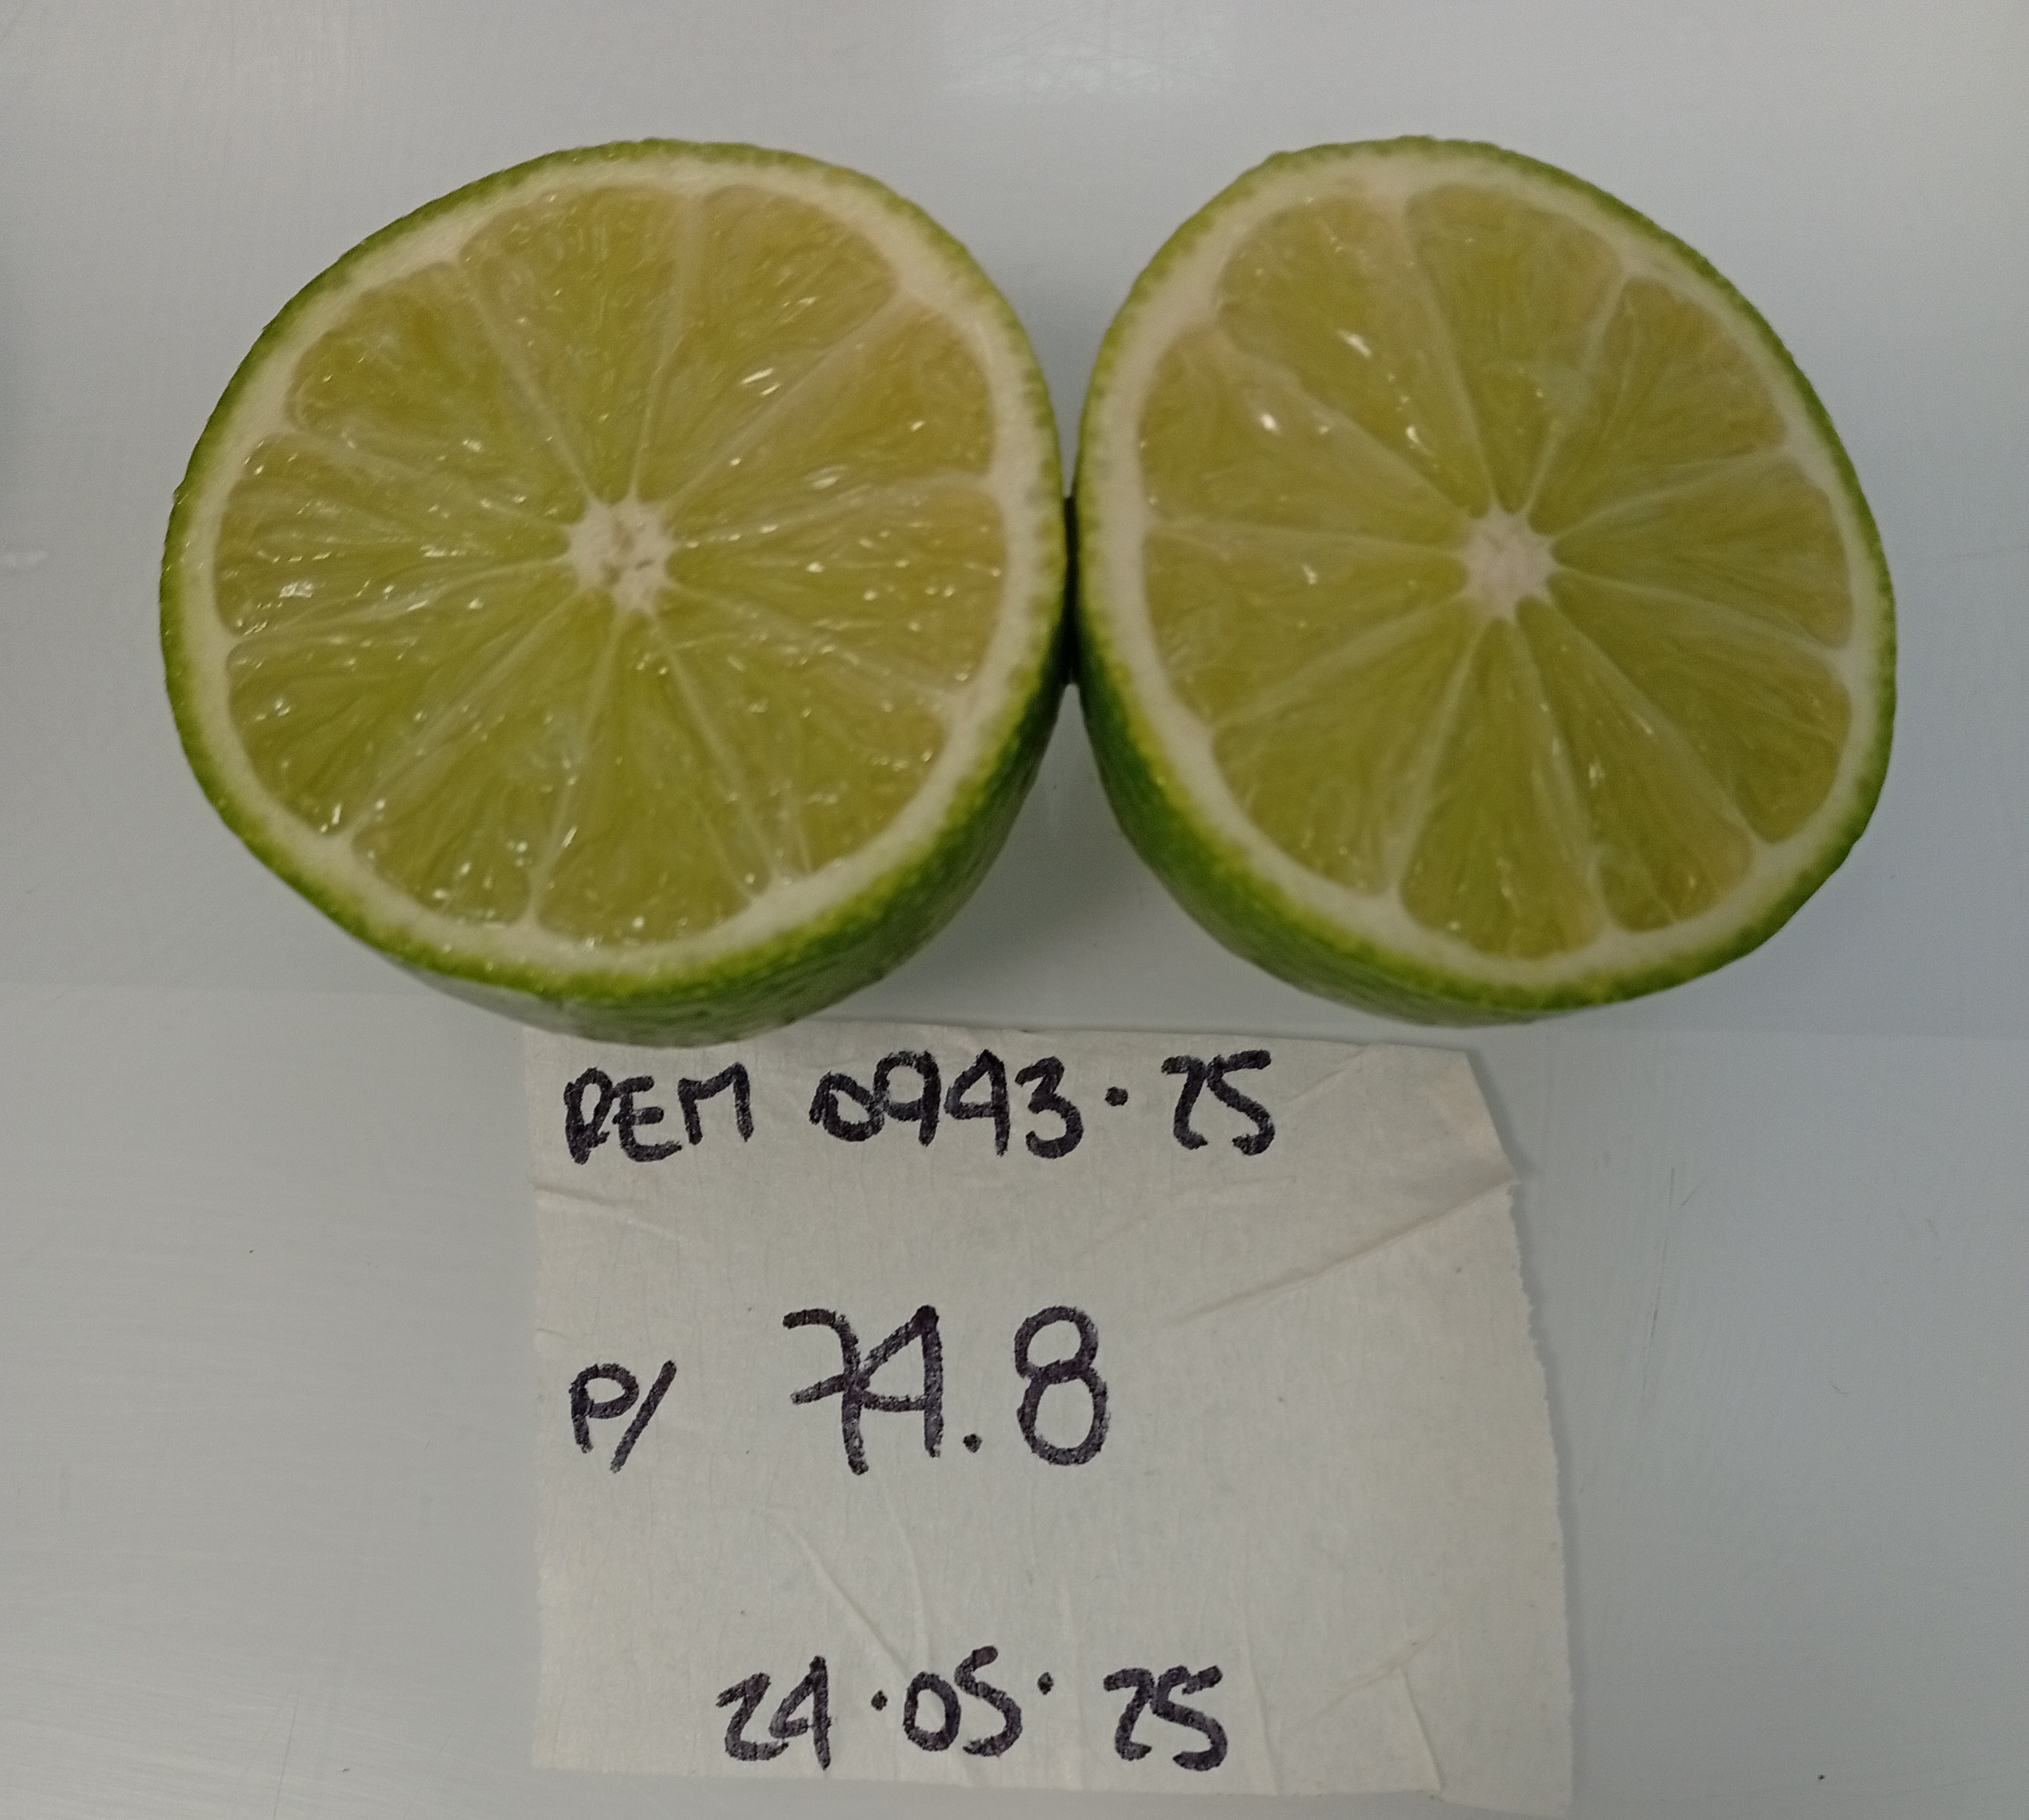 REM 0943.25
P/ 74.8
24.05.25